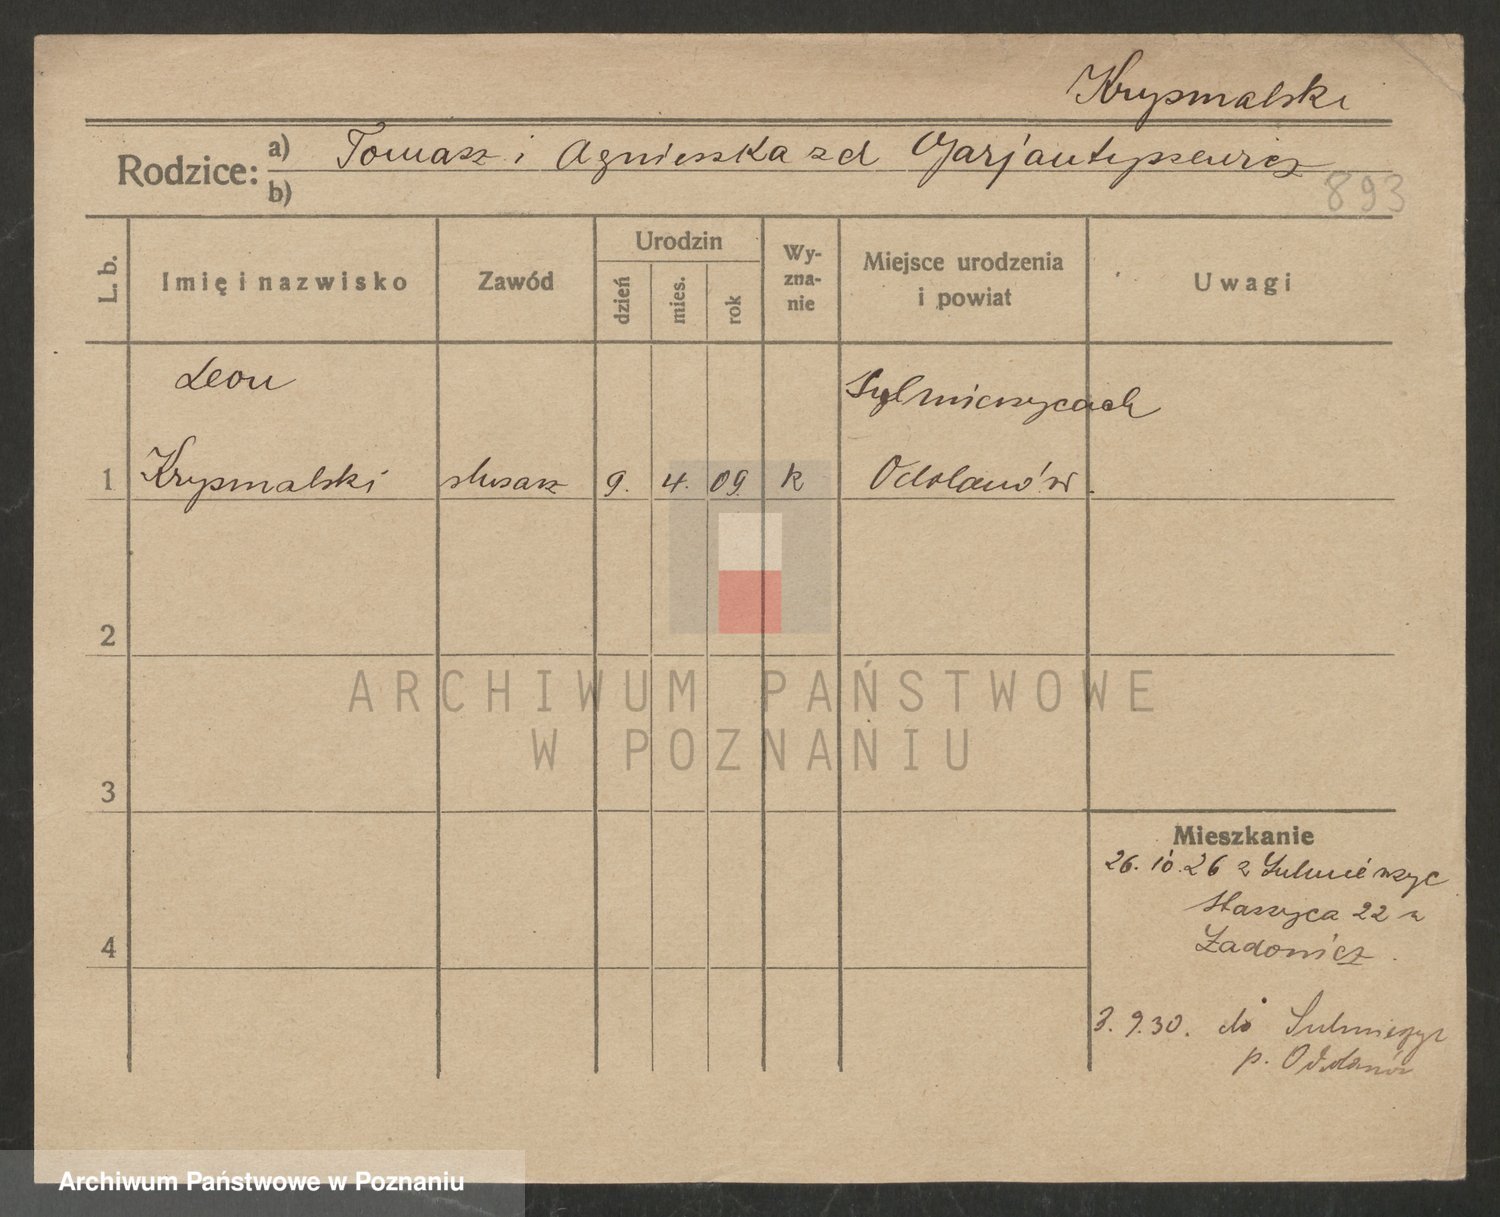 Krysmalski
Rodzice: a) Tomasz i Agnieszka zd
b)
893
L. b.
Imię i nazwisko
Zawód
Urodzin
dzień
mies.
rok
Wy-
zna-
nie
Miejsce urodzenia
i powiat
Uwagi
Leon
1 Krysmalski
ślusarz
9. 4. 09. k
Odolanów.
2
3
4
Mieszkanie
26.10.26 z
Staszyca 22 u
3.9.30. do
p. Odolanów
ARCHIWUM PAŃSTWOWE
W POZNANIU
Archiwum Państwowe w Poznaniu